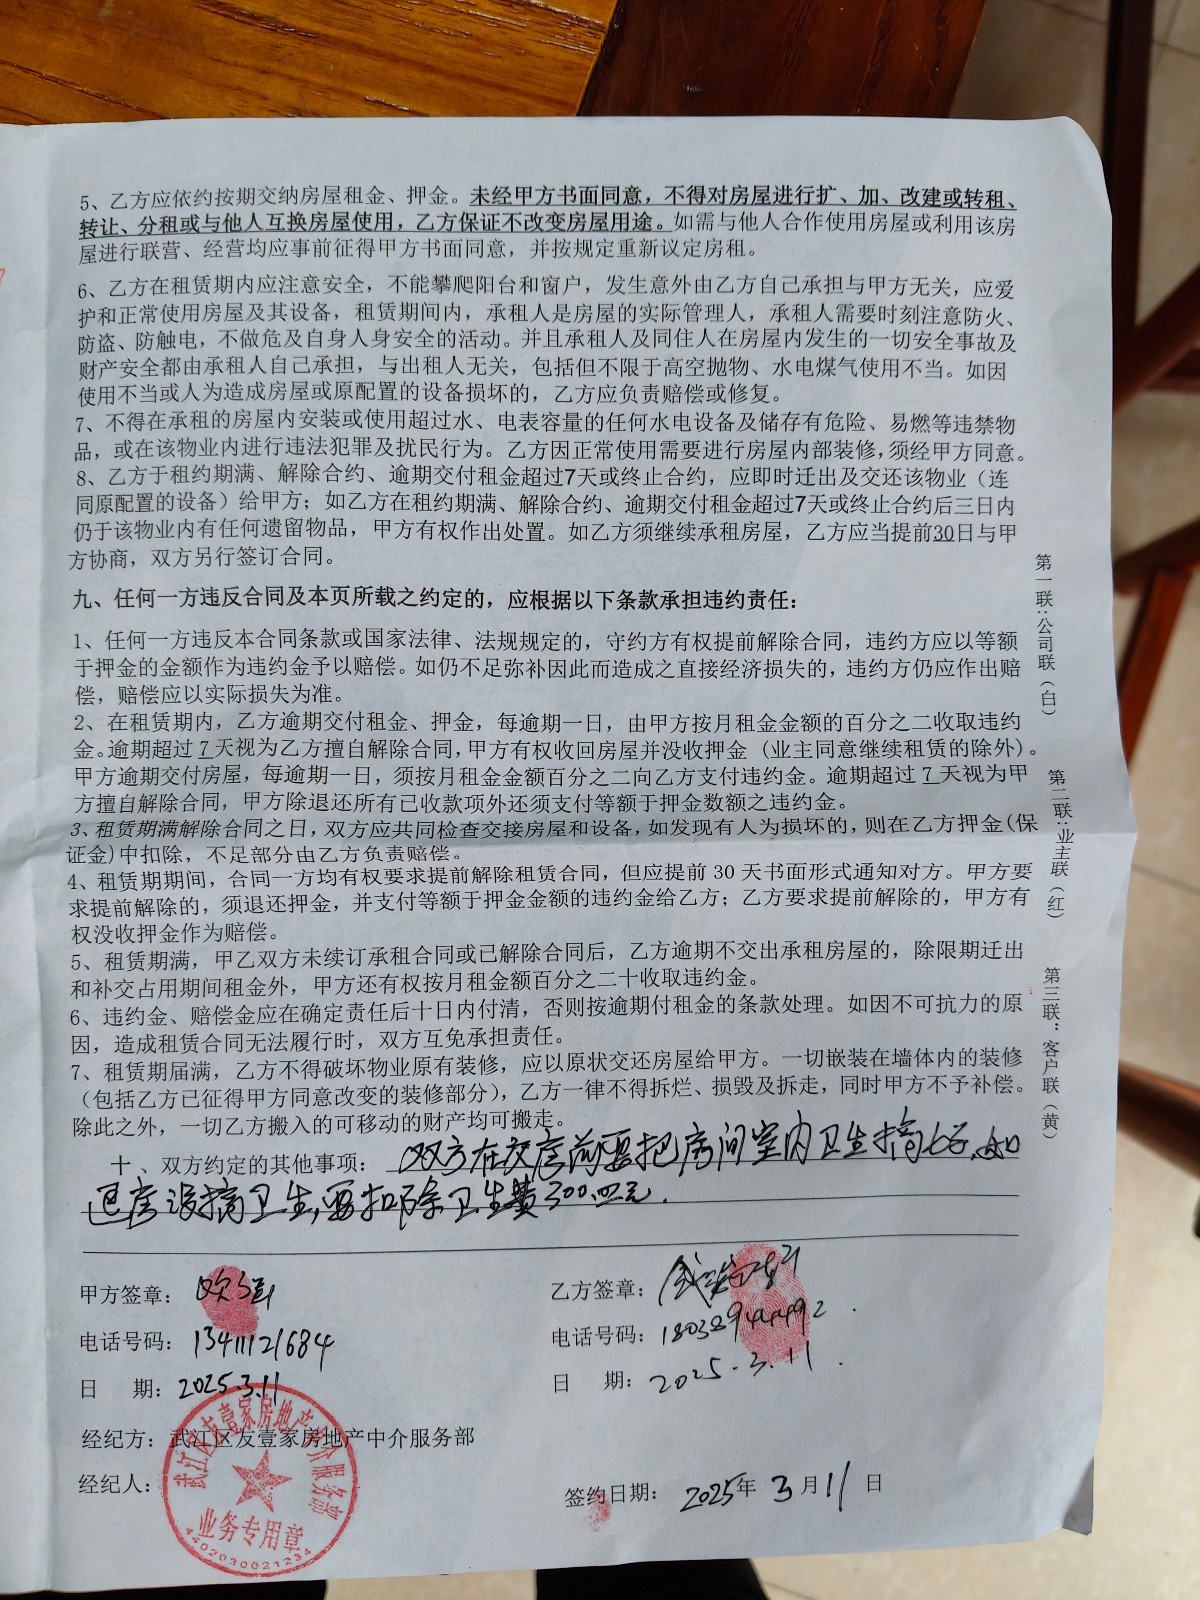 5、乙方应依约按期交纳房屋租金、押金。未经甲方书面同意，不得对房屋进行扩、加、改建或转租、
转让、分租或与他人互换房屋使用，乙方保证不改变房屋用途。如需与他人合作使用房屋或利用该房
屋进行联营、经营均应事前征得甲方书面同意，并按规定重新议定房租。
6、乙方在租赁期内应注意安全，不能攀爬阳台和窗户，发生意外由乙方自己承担与甲方无关，应爱
护和正常使用房屋及其设备，租赁期间内，承租人是房屋的实际管理人，承租人需要时刻注意防火、
防盗、防触电，不做危及自身人身安全的活动。并且承租人及同住人在房屋内发生的一切安全事故及
财产安全都由承租人自己承担，与出租人无关，包括但不限于高空抛物、水电煤气使用不当。如因
使用不当或人为造成房屋或原配置的设备损坏的，乙方应负责赔偿或修复。
7、不得在承租的房屋内安装或使用超过水、电表容量的任何水电设备及储存有危险、易燃等违禁物
品，或在该物业内进行违法犯罪及扰民行为。乙方因正常使用需要进行房屋内部装修，须经甲方同意。
8、乙方于租约期满、解除合约、逾期交付租金超过7天或终止合约，应即时迁出及交还该物业（连
同原配置的设备）给甲方；如乙方在租约期满、解除合约、逾期交付租金超过7天或终止合约后三日内
仍于该物业内有任何遗留物品，甲方有权作出处置。如乙方须继续承租房屋，乙方应当提前30日与甲
方协商，双方另行签订合同。
九、任何一方违反合同及本页所载之约定的，应根据以下条款承担违约责任：
1、任何一方违反本合同条款或国家法律、法规规定的，守约方有权提前解除合同，违约方应以等额
于押金的金额作为违约金予以赔偿。如仍不足弥补因此而造成之直接经济损失的，违约方仍应作出赔
偿，赔偿应以实际损失为准。
2、在租赁期内，乙方逾期交付租金、押金，每逾期一日，由甲方按月租金金额的百分之二收取违约
金。逾期超过 7 天视为乙方擅自解除合同，甲方有权收回房屋并没收押金（业主同意继续租赁的除外）。
甲方逾期交付房屋，每逾期一日，须按月租金金额百分之二向乙方支付违约金。逾期超过 7 天视为甲
方擅自解除合同，甲方除退还所有已收款项外还须支付等额于押金数额之违约金。
3、租赁期满解除合同之日，双方应共同检查交接房屋和设备，如发现有人为损坏的，则在乙方押金(保
证金)中扣除，不足部分由乙方负责赔偿。
4、租赁期期间，合同一方均有权要求提前解除租赁合同，但应提前 30 天书面形式通知对方。甲方要
求提前解除的，须退还押金，并支付等额于押金金额的违约金给乙方；乙方要求提前解除的，甲方有
权没收押金作为赔偿。
5、租赁期满，甲乙双方未续订承租合同或已解除合同后，乙方逾期不交出承租房屋的，除限期迁出
和补交占用期间租金外，甲方还有权按月租金额百分之二十收取违约金。
6、违约金、赔偿金应在确定责任后十日内付清，否则按逾期付租金的条款处理。如因不可抗力的原
因，造成租赁合同无法履行时，双方互免承担责任。
7、租赁期届满，乙方不得破坏物业原有装修，应以原状交还房屋给甲方。一切嵌装在墙体内的装修
（包括乙方已征得甲方同意改变的装修部分），乙方一律不得拆烂、损毁及拆走，同时甲方不予补偿。
除此之外，一切乙方搬入的可移动的财产均可搬走。
十、双方约定的其他事项：双方在交房前要把房间室内卫生搞好，如
退房没搞卫生，要扣除卫生费300.00元.
甲方签章：
乙方签章：
电话号码：13411121684
电话号码：18038944492
日 期：2025.3.11
日 期：2025.3.11.
经纪方：武江区友壹家房地产中介服务部
经纪人：
签约日期：2025年3月11日
武江区友壹家房地产中介服务部
业务专用章
4402030021234
第一联：公司联（白）
第二联：业主联（红）
第三联：客户联（黄）